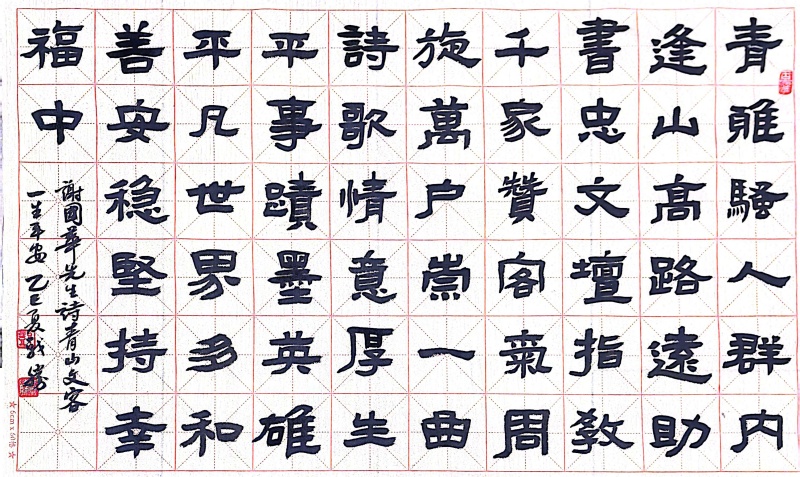 青雎騷人群内
逢山髙路遠助
書忠文壇指教
千家贊客氣周
旋萬户崇一曲
詩歌情意厚生
平事蹟墨英雄
平凡世界多和
善安穏堅持幸
福中
謝國華先生詩青山文客
一生平安 乙巳夏 戰勝
☆6cm×60格☆